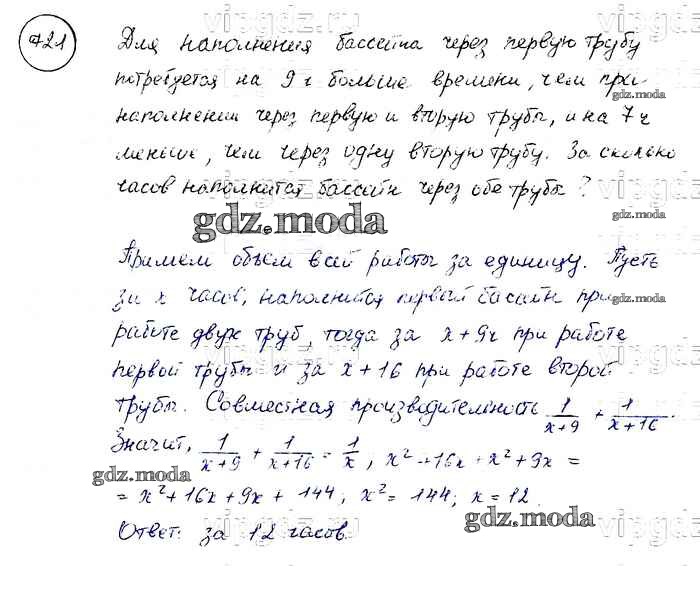 721
Для наполнения бассейна через первую трубу
потребуется на 9 ч больше времени, чем при
наполнении через первую и вторую трубы, и на 7 ч
меньше, чем через одну вторую трубу. За сколько
часов наполнится бассейн через обе трубы?
gdz.moda
Примем объем всей работы за единицу. Пусть
за x часов, наполнится первый басайн при
работе двух труб, тогда за x+9ч при работе
первой трубы и за x+16 при работе второй
трубы. Совместная производительность 1/(x+9) + 1/(x+16).
Значит, 1/(x+9) + 1/(x+16) = 1/x, x²+16x+x²+9x =
gdz.moda
= x²+16x+9x+144, x²=144; x=12
gdz.moda
Ответ: за 12 часов.